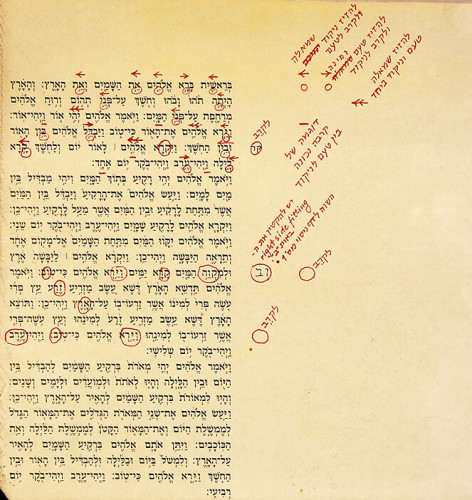 להזיז ניקוד שמאלה
ולקרב לטעם
להזיז טעם ימינה
ולקרב לניקוד
להזיז שמאלה
טעם וניקוד ביחד
דוגמה של
קרבה נכונה
בין טעם לניקוד
לקרב
קר
יש להקטין את ה..
right side fitting
וב
לקרב
לקרב
בְּרֵאשִׁית בָּרָא אֱלֹהִים אֵת הַשָּׁמַיִם וְאֵת הָאָרֶץ: וְהָאָרֶץ
הָיְתָה תֹהוּ וָבֹהוּ וְחֹשֶׁךְ עַל־פְּנֵי תְהוֹם וְרוּחַ אֱלֹהִים
מְרַחֶפֶת עַל־פְּנֵי הַמָּיִם: וַיֹּאמֶר אֱלֹהִים יְהִי אוֹר וַיְהִי־אוֹר:
וַיַּרְא אֱלֹהִים אֶת־הָאוֹר כִּי־טוֹב וַיַּבְדֵּל אֱלֹהִים בֵּין הָאוֹר
וּבֵין הַחֹשֶׁךְ: וַיִּקְרָא אֱלֹהִים | לָאוֹר יוֹם וְלַחֹשֶׁךְ קָרָא
לָיְלָה וַיְהִי־עֶרֶב וַיְהִי־בֹקֶר יוֹם אֶחָד:
וַיֹּאמֶר אֱלֹהִים יְהִי רָקִיעַ בְּתוֹךְ הַמָּיִם וִיהִי מַבְדִּיל בֵּין
מַיִם לָמָיִם: וַיַּעַשׂ אֱלֹהִים אֶת־הָרָקִיעַ וַיַּבְדֵּל בֵּין הַמַּיִם
אֲשֶׁר מִתַּחַת לָרָקִיעַ וּבֵין הַמַּיִם אֲשֶׁר מֵעַל לָרָקִיעַ וַיְהִי־כֵן:
וַיִּקְרָא אֱלֹהִים לָרָקִיעַ שָׁמָיִם וַיְהִי־עֶרֶב וַיְהִי־בֹקֶר יוֹם שֵׁנִי:
וַיֹּאמֶר אֱלֹהִים יִקָּווּ הַמַּיִם מִתַּחַת הַשָּׁמַיִם אֶל־מָקוֹם אֶחָד
וְתֵרָאֶה הַיַּבָּשָׁה וַיְהִי־כֵן: וַיִּקְרָא אֱלֹהִים | לַיַּבָּשָׁה אֶרֶץ
וּלְמִקְוֵה הַמַּיִם קָרָא יַמִּים וַיַּרְא אֱלֹהִים כִּי־טוֹב: וַיֹּאמֶר
אֱלֹהִים תַּדְשֵׁא הָאָרֶץ דֶּשֶׁא עֵשֶׂב מַזְרִיעַ זֶרַע עֵץ פְּרִי
עֹשֶׂה פְּרִי לְמִינוֹ אֲשֶׁר זַרְעוֹ־בוֹ עַל־הָאָרֶץ וַיְהִי־כֵן: וַתּוֹצֵא
הָאָרֶץ דֶּשֶׁא עֵשֶׂב מַזְרִיעַ זֶרַע לְמִינֵהוּ וְעֵץ עֹשֶׂה־פְּרִי
אֲשֶׁר זַרְעוֹ־בוֹ לְמִינֵהוּ וַיַּרְא אֱלֹהִים כִּי־טוֹב: וַיְהִי־עֶרֶב
וַיְהִי־בֹקֶר יוֹם שְׁלִישִׁי:
וַיֹּאמֶר אֱלֹהִים יְהִי מְאֹרֹת בִּרְקִיעַ הַשָּׁמַיִם לְהַבְדִּיל בֵּין
הַיּוֹם וּבֵין הַלָּיְלָה וְהָיוּ לְאֹתֹת וּלְמוֹעֲדִים וּלְיָמִים וְשָׁנִים:
וְהָיוּ לִמְאוֹרֹת בִּרְקִיעַ הַשָּׁמַיִם לְהָאִיר עַל־הָאָרֶץ וַיְהִי־כֵן:
וַיַּעַשׂ אֱלֹהִים אֶת־שְׁנֵי הַמְּאֹרֹת הַגְּדֹלִים אֶת־הַמָּאוֹר הַגָּדֹל
לְמֶמְשֶׁלֶת הַיּוֹם וְאֶת־הַמָּאוֹר הַקָּטֹן לְמֶמְשֶׁלֶת הַלַּיְלָה וְאֵת
הַכּוֹכָבִים: וַיִּתֵּן אֹתָם אֱלֹהִים בִּרְקִיעַ הַשָּׁמָיִם לְהָאִיר
עַל־הָאָרֶץ: וְלִמְשֹׁל בַּיּוֹם וּבַלַּיְלָה וּלְהַבְדִּיל בֵּין הָאוֹר וּבֵין
הַחֹשֶׁךְ וַיַּרְא אֱלֹהִים כִּי־טוֹב: וַיְהִי־עֶרֶב וַיְהִי־בֹקֶר יוֹם
רְבִיעִי: